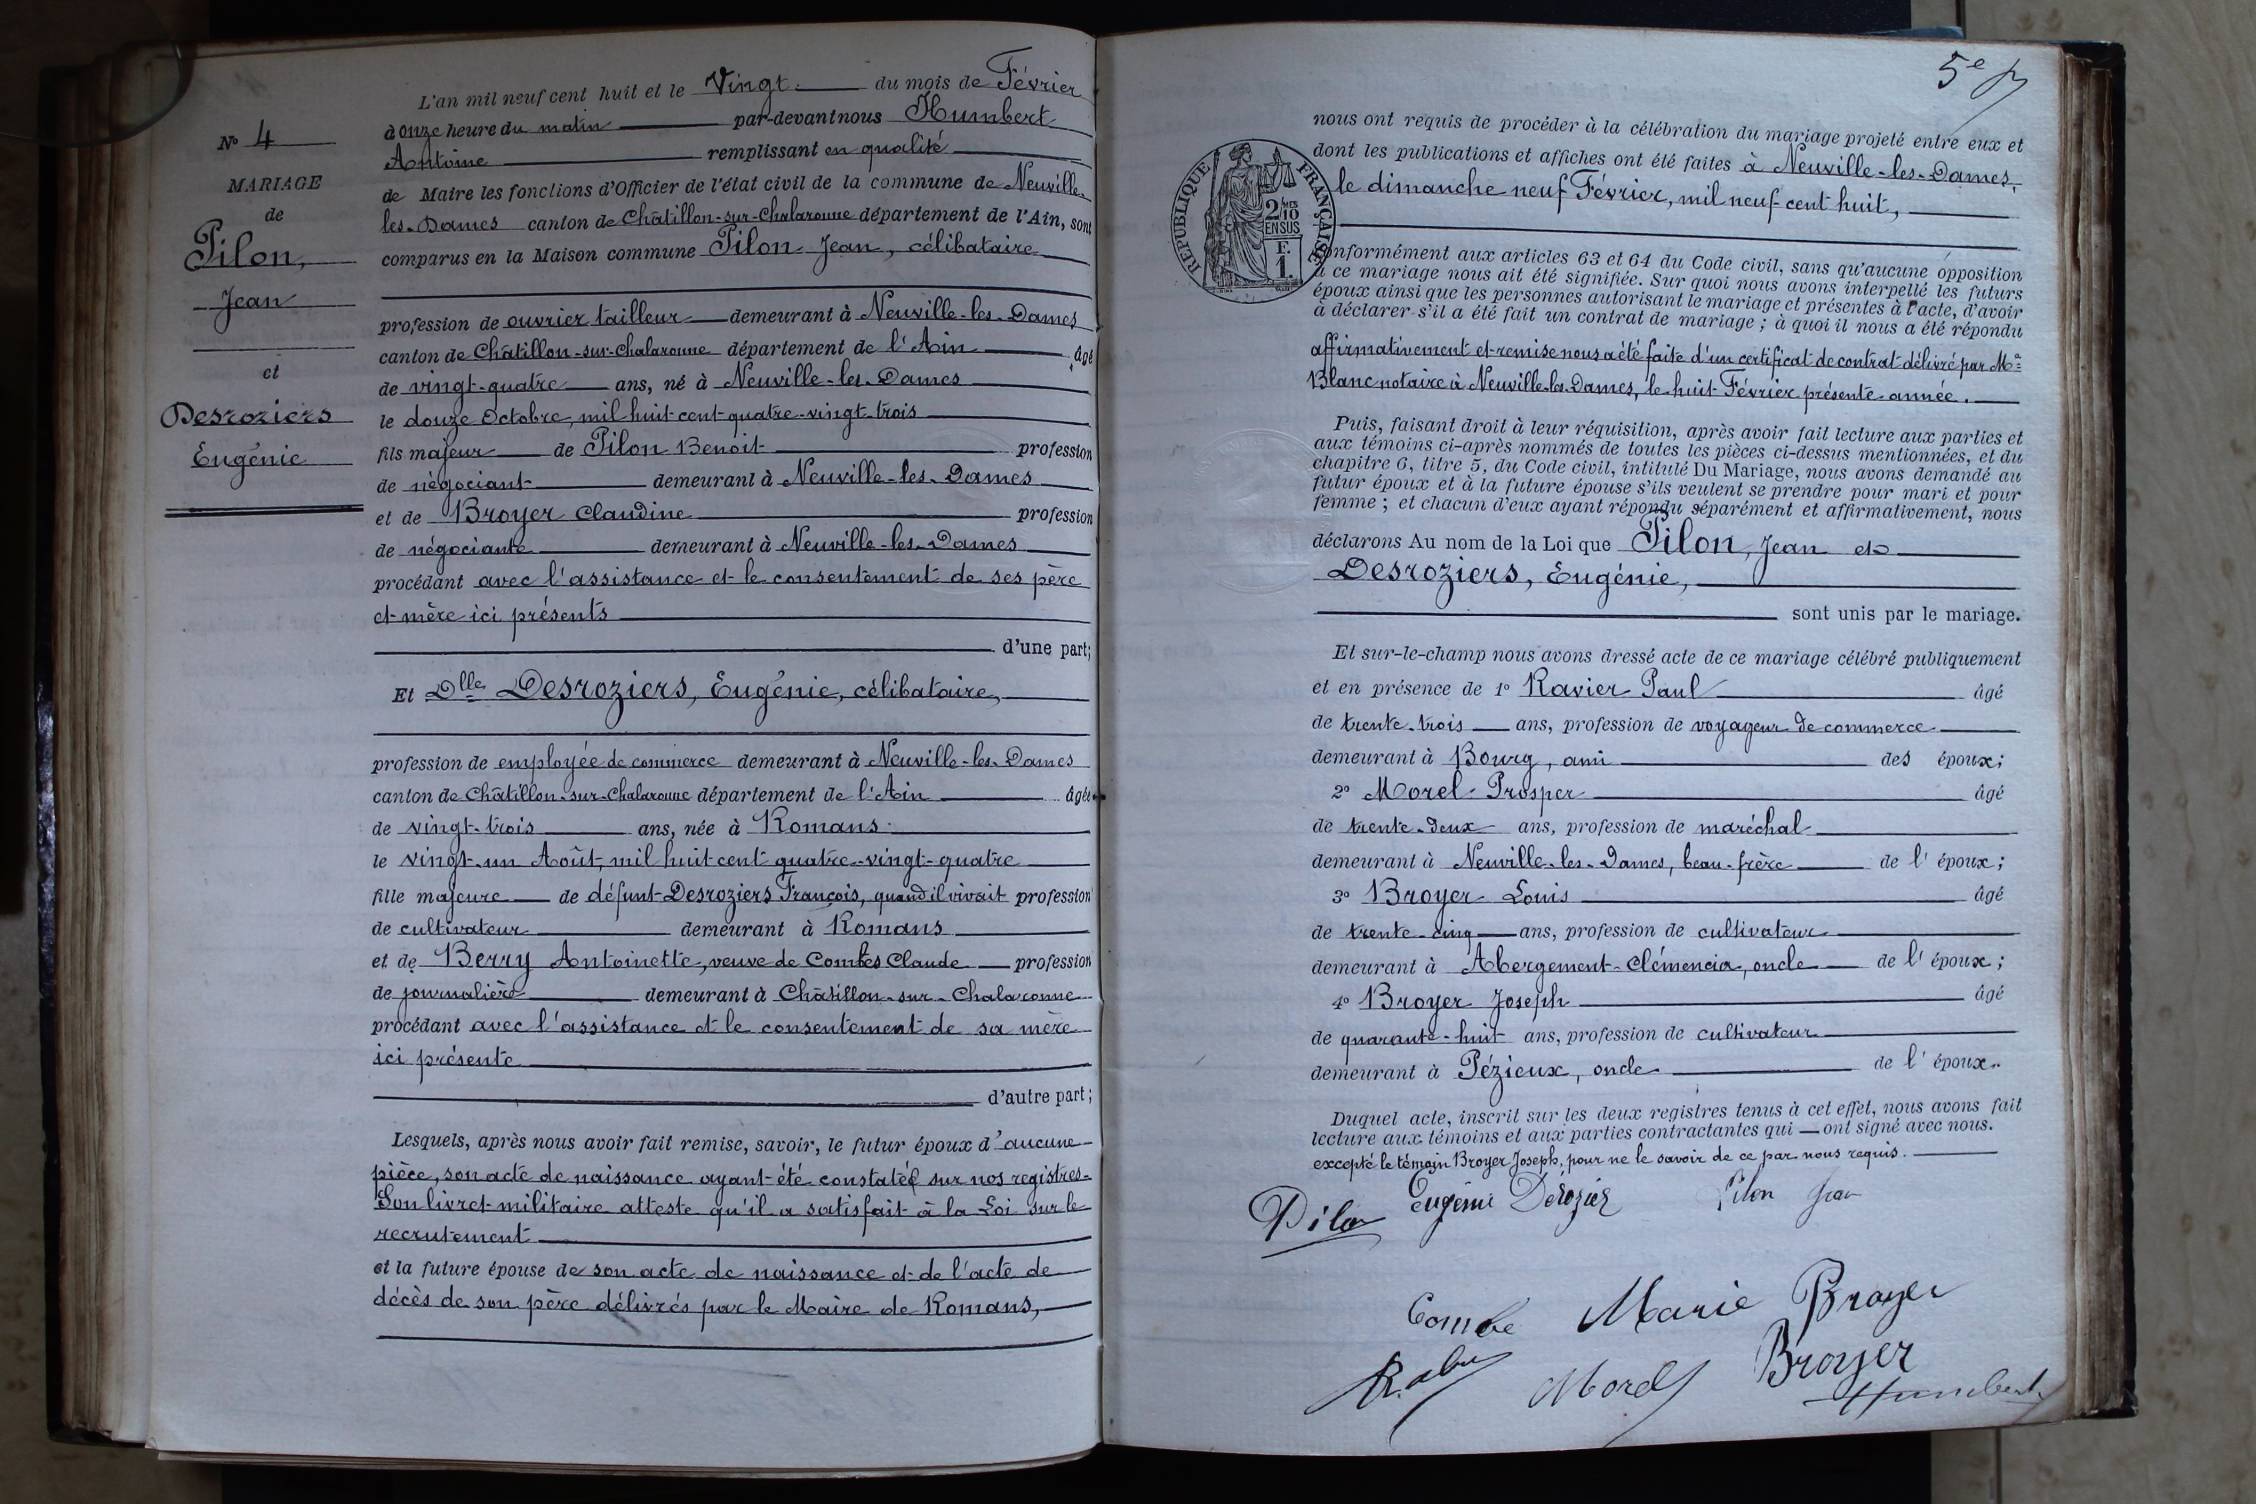 N° 4
MARIAGE
de
Pilon,
Jean
et
Desroziers
Eugénie
L'an mil neuf cent huit et le Vingt du mois de Février
à onze heure du matin par-devant nous Humbert
Antoine remplissant en qualité
de Maire les fonctions d'Officier de l'état civil de la commune de Neuville-
les-Dames canton de Châtillon-sur-Chalaronne département de l'Ain, sont
comparus en la Maison commune Pilon Jean, célibataire
profession de ouvrier tailleur demeurant à Neuville-les-Dames
canton de Châtillon-sur-Chalaronne département de l'Ain âgé
de vingt-quatre ans, né à Neuville-les-Dames
le douze Octobre, mil huit cent quatre-vingt-trois
fils majeur de Pilon Benoit profession
de négociant demeurant à Neuville-les-Dames
et de Broyer Claudine profession
de négociante demeurant à Neuville-les-Dames
procédant avec l'assistance et le consentement de ses père
et mère ici présents
d'une part;
Et Dlle Desroziers, Eugénie, célibataire,
profession de employée de commerce demeurant à Neuville-les-Dames
canton de Châtillon-sur-Chalaronne département de l'Ain âgée
de vingt-trois ans, née à Romans
le vingt-un Août, mil huit cent quatre-vingt-quatre
fille majeure de défunt Desroziers François, quand il vivait profession
de cultivateur demeurant à Romans
et de Berry Antoinette, veuve de Combes Claude profession
de journalière demeurant à Châtillon-sur-Chalaronne
procédant avec l'assistance et le consentement de sa mère
ici présente
d'autre part;
Lesquels, après nous avoir fait remise, savoir, le futur époux d'aucune
pièce, son acte de naissance ayant été constaté sur nos registres
Son livret militaire atteste qu'il a satisfait à la Loi sur le
recrutement
et la future épouse de son acte de naissance et de l'acte de
décès de son père délivrés par le Maire de Romans,
5e
nous ont requis de procéder à la célébration du mariage projeté entre eux et
dont les publications et affiches ont été faites à Neuville-les-Dames,
le dimanche neuf Février, mil neuf cent huit,
RÉPUBLIQUE FRANÇAISE
2/10 MES
EN SUS
F.
1.
conformément aux articles 63 et 64 du Code civil, sans qu'aucune opposition
à ce mariage nous ait été signifiée. Sur quoi nous avons interpellé les futurs
époux ainsi que les personnes autorisant le mariage et présentes à l'acte, d'avoir
à déclarer s'il a été fait un contrat de mariage ; à quoi il nous a été répondu
affirmativement et remise nous a été faite d'un certificat de contrat délivré par Me
Blanc notaire à Neuville-les-Dames, le huit Février présente année.
Puis, faisant droit à leur réquisition, après avoir fait lecture aux parties et
aux témoins ci-après nommés de toutes les pièces ci-dessus mentionnées, et du
chapitre 6, titre 5, du Code civil, intitulé Du Mariage, nous avons demandé au
futur époux et à la future épouse s'ils veulent se prendre pour mari et pour
femme ; et chacun d'eux ayant répondu séparément et affirmativement, nous
déclarons Au nom de la Loi que Pilon, Jean et
Desroziers, Eugénie,
sont unis par le mariage.
Et sur-le-champ nous avons dressé acte de ce mariage célébré publiquement
et en présence de 1° Ravier Paul âgé
de trente-trois ans, profession de voyageur de commerce
demeurant à Bourg, ami des époux;
2° Morel Prosper âgé
de trente-deux ans, profession de maréchal
demeurant à Neuville-les-Dames, beau-frère de l'époux;
3° Broyer Louis âgé
de trente-cinq ans, profession de cultivateur
demeurant à Abergement-Clémencia, oncle de l'époux;
4° Broyer Joseph âgé
de quarante-huit ans, profession de cultivateur
demeurant à Pézieux, oncle de l'époux.
Duquel acte, inscrit sur les deux registres tenus à cet effet, nous avons fait
lecture aux témoins et aux parties contractantes qui ont signé avec nous.
excepté le témoin Broyer Joseph, pour ne le savoir de ce par nous requis.
Pilon Eugénie Dérozier Pilon Jean
Combe Marie Broyer
Morel Broyer
Humbert